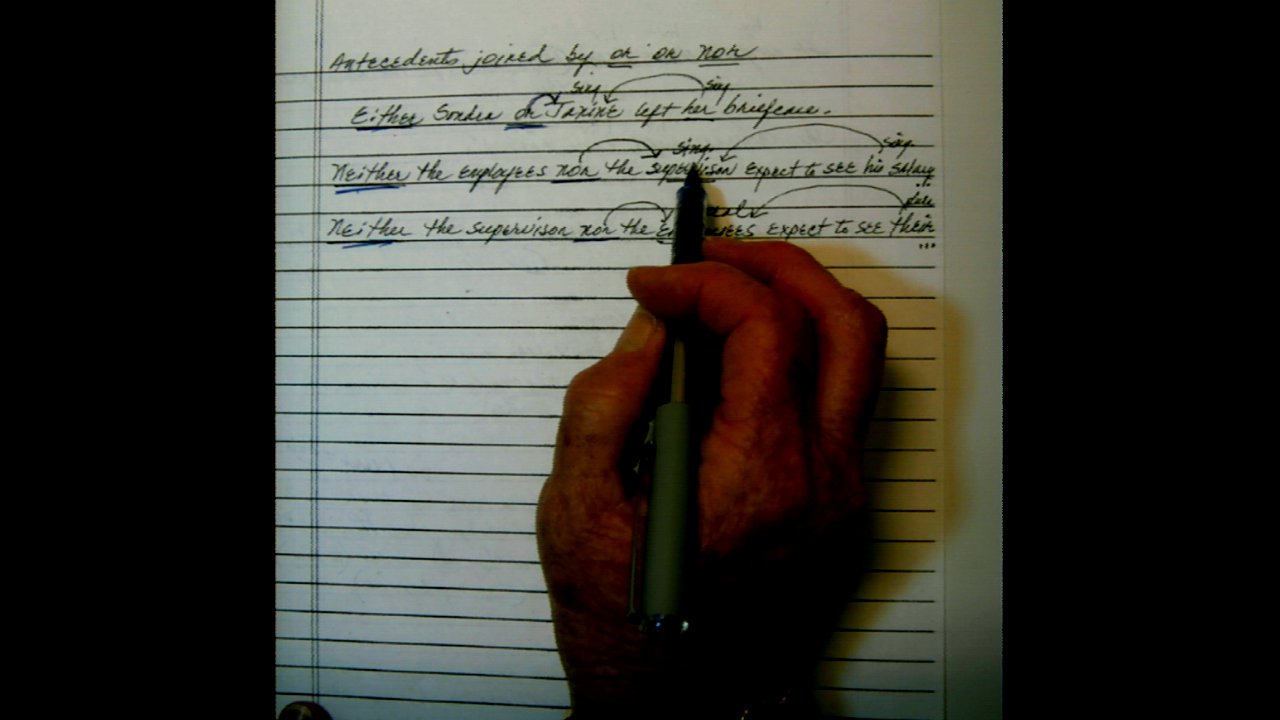 Antecedents joined by or or nor
sing sing
Either Sondra or Janine left her briefcase.
sing. sing.
Neither the employees nor the supervisor expect to see his salary
Neither the supervisor nor the expect to see their
...